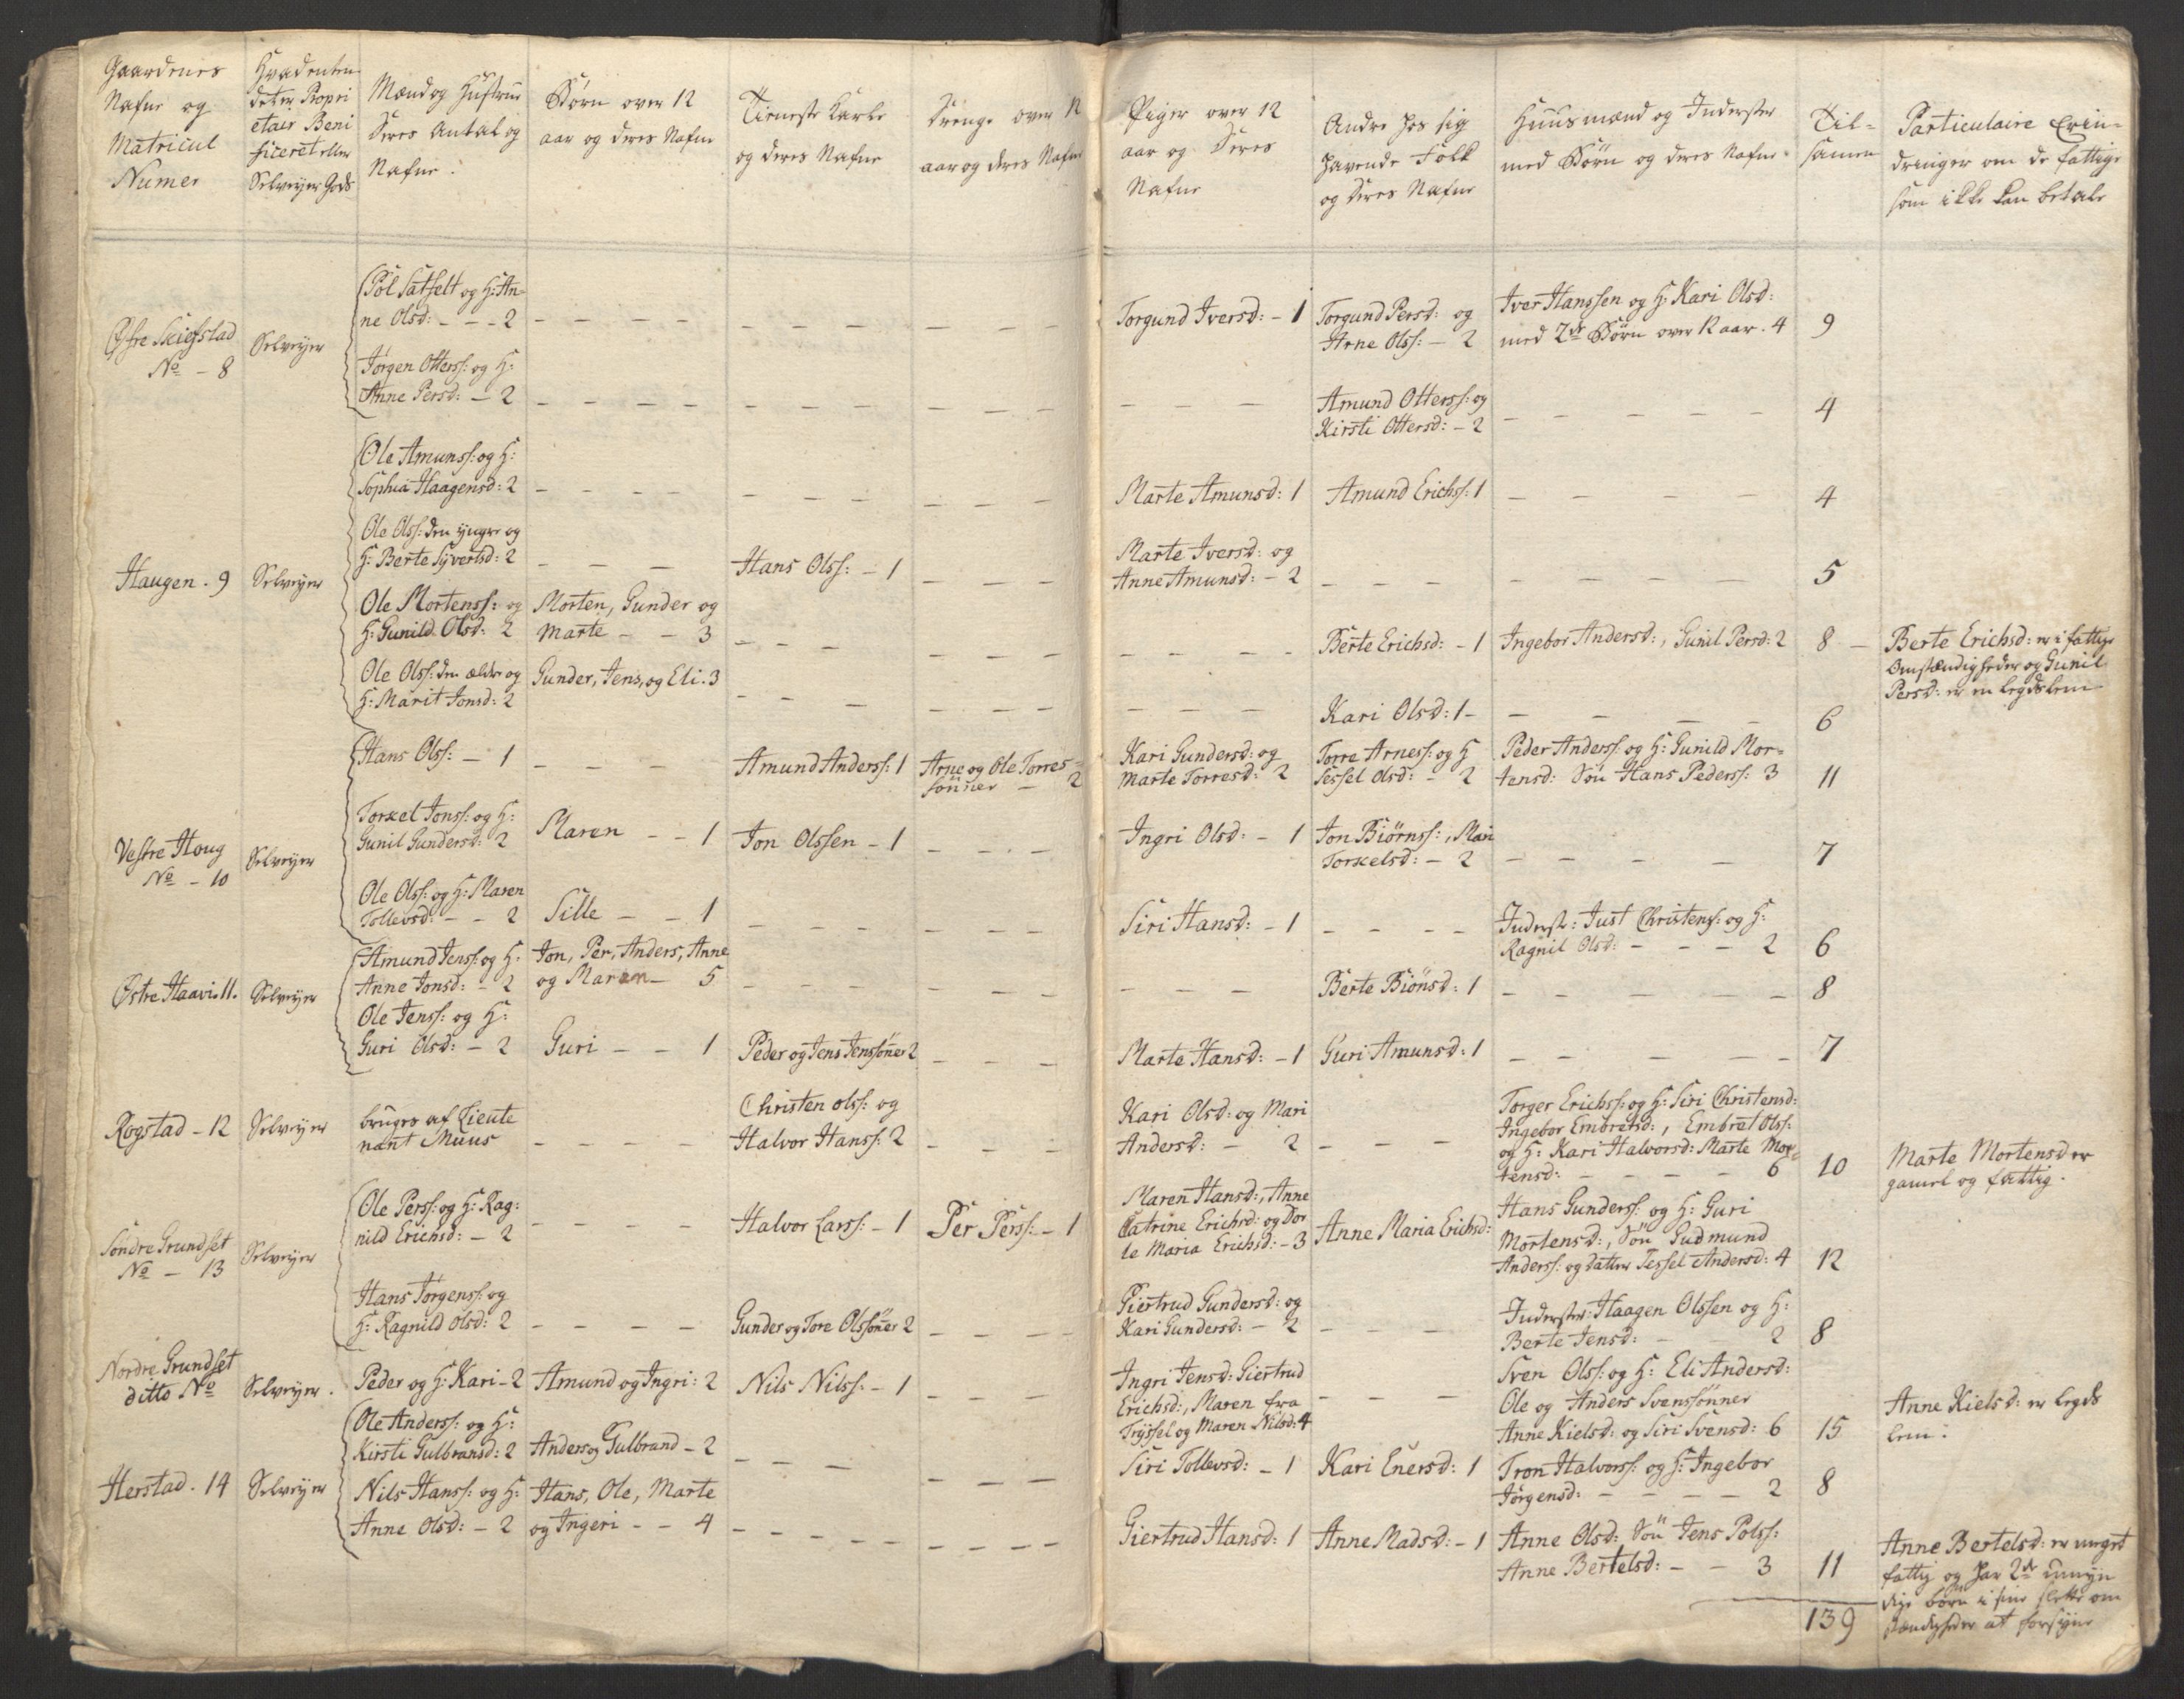 Gaardenes
Nafne og
Matricul
Numer
Hvadenten
det er Propri
etair Beni
ficeret eller
Selveyer Gods
Mænd og Hustrue
Deres Antal og
Nafne.
Børn over 12
aar og deres Nafne
Tieneste Karle
og deres Nafne
Drenge over 12
aar og deres Nafne
Piger over 12
aar og Deres
Nafne
Andre hos sig
havende Folk
og Deres Nafne
Huusmænd og Inderster
med Børn og deres Nafne
Til-
samen
Particulaire Erin-
dringer om de fattige
som ikke kan betale
Øfre Skiefstad
No - 8
Selveyer
Pol Satfelt og H: An-
ne Olsd: - - - 2
Torgund Iversd: - 1
Torgund Persd: og
Arne Olss: - 2
Iver Hanssen og H: Kari Olsd:
med 2de Børn over 12 aar. 4
9
Jørgen Otterss: og H:
Anne Persd: - 2
Amund Otterss: og
Kirsti Ottersd: - 2
4
Haugen. 9
Selveyer
Ole Amunss: og H:
Sophia Haagensd: 2
Marte Amunsd: 1
Amund Erichss: 1
4
Ole Olss: den yngre og
H: Berte Syvertsd: 2
Hans Olss: - 1
Marte Iversd: og
Anne Amunsd: - 2
5
Ole Mortenss: og
H: Gunild Olsd: 2
Morten, Gunder og
Marte - - 3
Berte Erichsd: - 1
Ingebor Andersd:, Gunil Persd: 2
8 -
Berte Erichsd: er i fattige
Omstændigheder og Gunil
Persd: er en legdslem
Ole Olss: den ældre og
H: Marit Jonsd: 2
Gunder, Jens, og Eli. 3
Kari Olsd: 1 -
6
Vestre Houg
No - 10
Selveyer
Hans Olss: - 1
Amund Anderss: 1
Arne og Ole Torres-
sønner - 2
Kari Gundersd: og
Marte Torresd: 2
Torre Arness: og H
Sessel Olsd: - 2
Peder Anderss: og H: Gunild Mor-
tensd: Søn Hans Pederss: 3
11
Torkel Jonss: og H:
Gunil Gundersd: 2
Maren - - 1
Jon Olssen - 1
Ingri Olsd: - 1
Jon Biørnss:, Mari
Torkelsd: - 2
7
Ole Olss: og H: Maren
Tollevsd: - - 2
Sille - - 1
Siri Hansd: - 1
Inderst: Just Christenss: og H:
Ragnil Olsd: - - - 2
6
Østre Haavi. 11.
Selveyer
Amund Jenss: og H:
Anne Jonsd: - 2
Jon, Per, Anders, Anne
og Maren - 5
Berte Biönsd: 1
8
Ole Jenss: og H:
Guri Olsd: - 2
Guri - - 1
Peder og Jens Jenssöner 2
Marte Hansd: - 1
Guri Amunsd: 1
7
Rogstad - 12
Selveyer
bruges af Lieute
nant Muus
Christen Olss: og
Halvor Hanss: 2
Kari Olsd: og Mari
Andersd: - 2
Torger Erichss: og H: Siri Christensd:
Ingebor Embretsd:, Embret Olss:
og H: Kari Halvorsd: Marte Mor-
tensd: - - - - 6
10
Marte Mortensd er
gamel og fattig.
Söndre Grundset
No - 13
Selveyer
Ole Perss: og H: Rag:
nild Erichsd: - 2
Halvor Larss: - 1
Per Perss: - 1
Maren Hansd:, Anne
Catrine Erichsd: og Dor
te Maria Erichsd: - 3
Anne Maria Erichsd:
Hans Gunderss: og H: Guri
Mortensd:, Søn Gudmund
Anderss: og datter Sessel Andersd: 4
12
Hans Jørgenss: og
H: Ragnild Olsd: 2
Gunder og Tore Olssöner 2
Giertrud Gundersd: og
Kari Gundersd: - 2
Inderster: Haagen Olssen og H:
Berte Jensd: - - 2
8
Nordre Grundset
ditto No
Selveyer.
Peder og H: Kari - 2
Amund og Ingri: 2
Nils Nilss: - 1
Ingri Jensd: Giertrud
Erichsd:, Maren fra
Trÿssel og Maren Nilsd: 4
Sven Olss: og H: Eli Andersd:
Ole og Anders Svenssønner
Anne Kielsd: og Siri Svensd: 6
15
Anne Kielsd: er legds
lem.
Herstad. 14
Selveyer
Ole Anderss: og H:
Kirsti Gulbransd: 2
Anders og Gulbrand - 2
Siri Tollevsd: - 1
Kari Enersd: 1
Tron Halvorss: og H: Ingebor
Jørgensd: - - - - 2
8
Nils Hanss: og H:
Anne Olsd: - 2
Hans, Ole, Marte
og Ingeri - - 4
Giertrud Hansd: 1
Anne Madsd: - 1
Anne Olsd: Søn Jens Polss:
Anne Bertelsd: - - 3
11
Anne Bertelsd: er meget
fattig og har 2de umyn
dige børn i sine slette om
stændigheder at forsyne
139